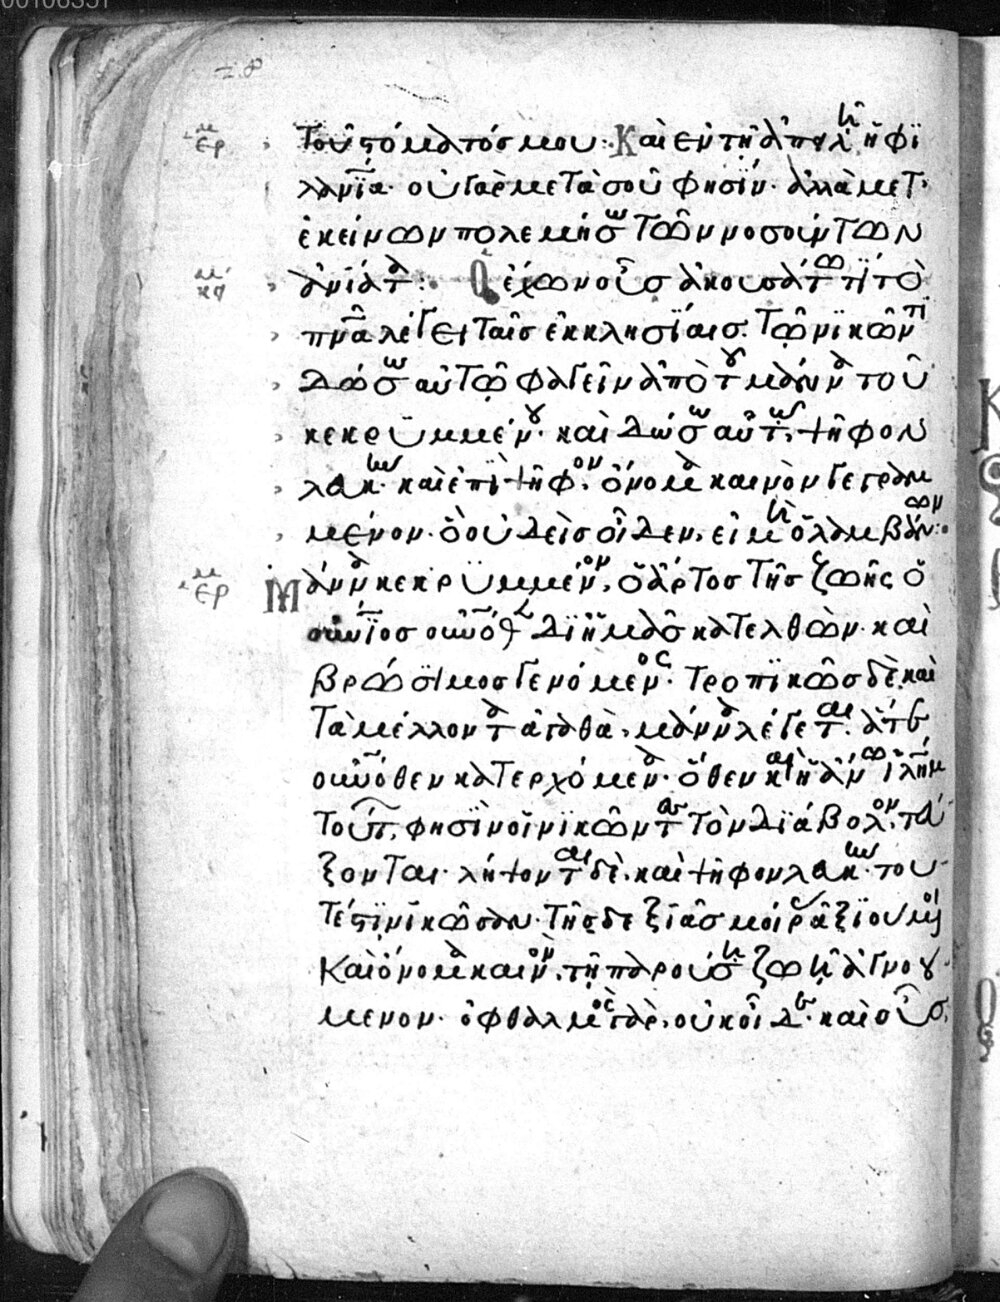 00106351
τοῦ στόματός μου: Καὶ ἐν τῇ ἀπειλῇ ἡ φι
λανία· οὐ γὰρ μετὰ σοῦ φησίν· ἀλλὰ μετ'
ἐκείνων πολεμήσω τῶν νοσούντων
ἀνίατα: Ὁ ἔχων οὖς ἀκουσάτω τί τὸ
πνᾶ λέγει ταῖς ἐκκλησίαις. Τῷ νικῶντι
δώσω αὐτῷ φαγεῖν ἀπὸ τοῦ μάννα τοῦ
κεκρυμμένου· καὶ δώσω αὐτῷ ψῆφον
λευκήν· καὶ ἐπὶ τὴν ψῆφον, ὄνομα καινὸν γεγραμ
μένον· ὃ οὐδεὶς οἶδεν, εἰ μὴ ὁ λαμβάνων:
Μάννα κεκρυμμένον, ὁ ἄρτος τῆς ζωῆς ὁ
οὐνιος οὐνόθεν δι' ἡμᾶς κατελθών· καὶ
βρώσιμος γενόμενος· Τροπικῶς δὲ καὶ
τὰ μέλλοντα ἀγαθά, μάννα λέγεται. ἅτε
οὐνόθεν κατερχόμενα· ὅθεν καὶ ἡ ἄνω ἰλημ
τούτων, φησὶν οἱ νικῶντες τὸν διάβολον, τεύ
ξονται· λήψονται δὲ καὶ ψῆφον λευκήν· του
τέστι νικῶσαν· τῆς δεξιᾶς μοίρας ἀξιουμένοι
καὶ ὄνομα καινόν, τῇ παρούσῃ ζωῇ ἀγνού
μενον· ὀφθαλμὸς γάρ, οὐκ οἶδε· καὶ οὖς,